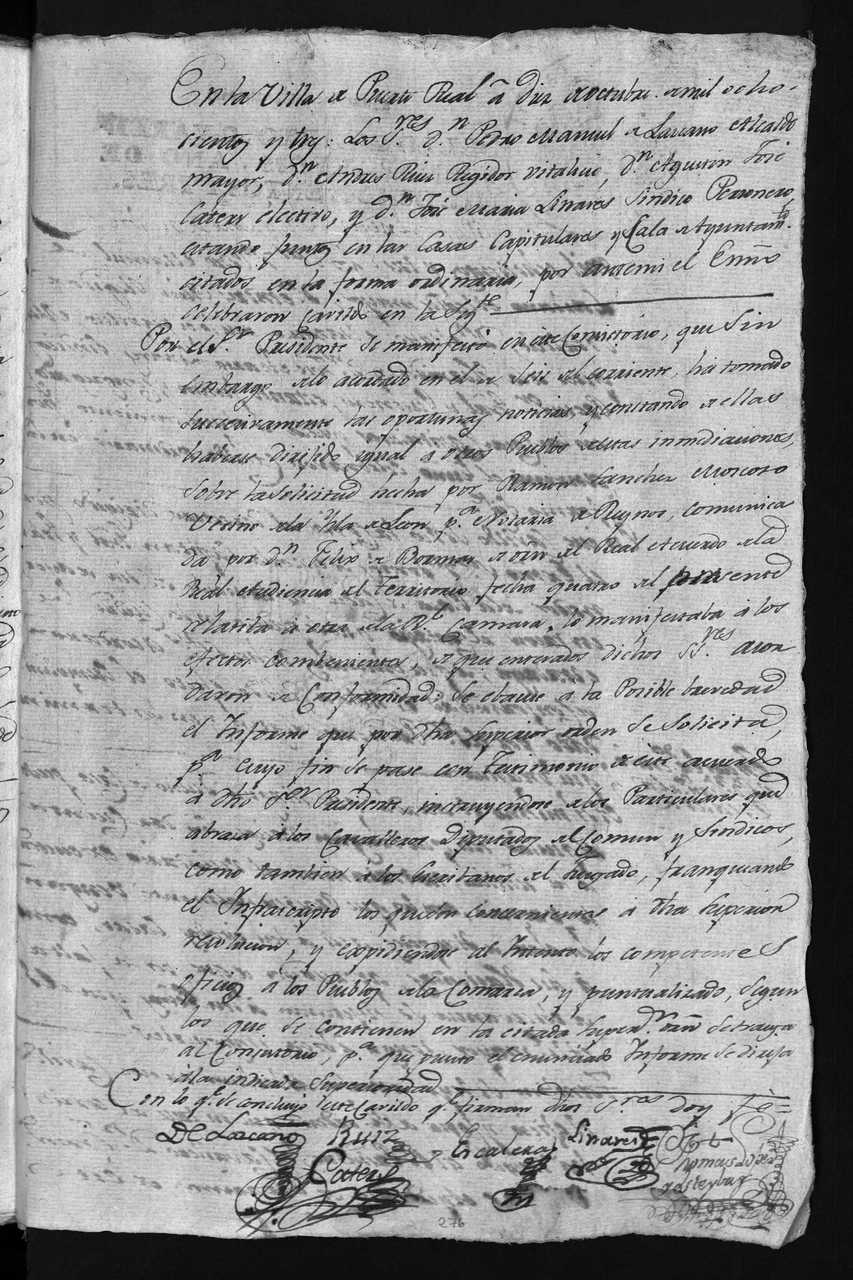 En la Villa de Puerto Real â Diez de octubre de mil ocho-
cientos y tres: Los S.res d.n Pedro Manuel de Lazcano Alcalde
mayor, d.n Andres Ruiz Regidor vitalicio, d.n Agustin José
Catere electivo, y d.n José Maria Linares Sindico Personero
estando juntos en las Casas Capitulares y Sala de Ayuntam.to
citados en la forma ordinaria, por ante mi el Essno
celebraron Cavildo en la
Por el S.r Presidente se manifestó en este Consistorio, que Sin
embargo de lo acordado en el de Seis del corriente, ha tomado
succesivamente las oportunas noticias, y constando de ellas
haberse dirijido igual a otros Pueblos de estas inmediaciones,
sobre la solicitud hecha por Ramon Sanchez Moscoso
Vecino de la Ysla de Leon p.a Notaria de Reynos, comunica
da por d.n Felix de Bormas de orn del Real Acuerdo de la
Real Audiencia del Territorio fecha quatro del presente
relativa á otra de la R.l Camara, lo manifestaba á los
efectos combenientes, de que enterados dichos SS.res acor
daron de Conformidad: Se evacue á la Posible brevedad
el Informe que por dha superior orden se Solicita,
p.a cuyo fin se pase con Testimonio de este acuerdo
á dho S.or Presidente, instruyendose de los Particulares que
abraza á los Cavalleros Diputados del Comun y Sindicos,
como tambien á los Escribanos del Juzgado, franqueando
el Infrascripto los que den concernientes á dha superior
resolucion, y expidiendose al Intento los competentes
oficios á los Pueblos de la Comarca, y puntualizado, segun
los que se contienen en la citada super.or orn se trayga
al Consistorio, p.a que visto el enunciado Informe se dirija
á la indicada Superioridad
Con lo q.e se concluyó este Cavildo q.e firman dhos S.res doy fé=
De Lazcano Ruiz
Escalera Linares
Catere
276